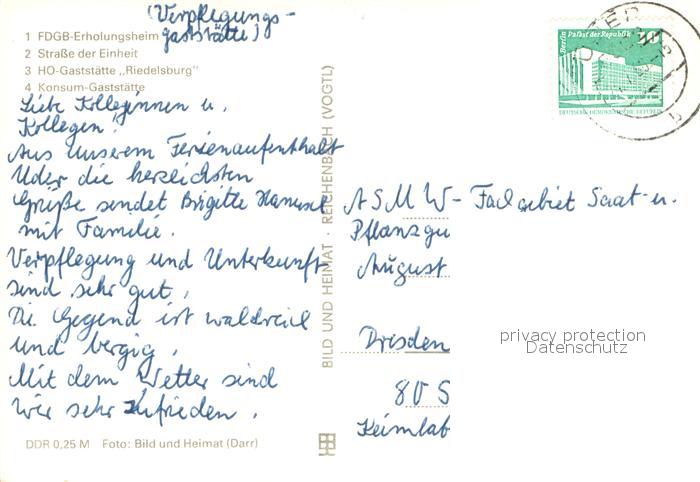 (Verpflegungs-
gaststätte)
1 FDGB-Erholungsheim
2 Straße der Einheit
3 HO-Gaststätte „Riedelsburg"
4 Konsum-Gaststätte
Liebe Kolleginnen u.
Kollegen!
Aus unserem Ferienaufenthalt
die herzlichsten
Grüße sendet Brigitte
mit Familie.
Verpflegung und Unterkunft
sind sehr gut,
Die Gegend ist waldreich
und bergig,
Mit dem Wetter sind
wir sehr zufrieden.
DDR 0,25 M Foto: Bild und Heimat (Darr)
BILD UND HEIMAT · REICHENBACH (VOGTL)
Berlin Palast der Republik
DEUTSCHE DEMOKRATISCHE REPUBLIK
ASMW- Fachgebiet Saat- u.
Pflanzgu
August
Dresden
privacy protection
Datenschutz
Keimlab